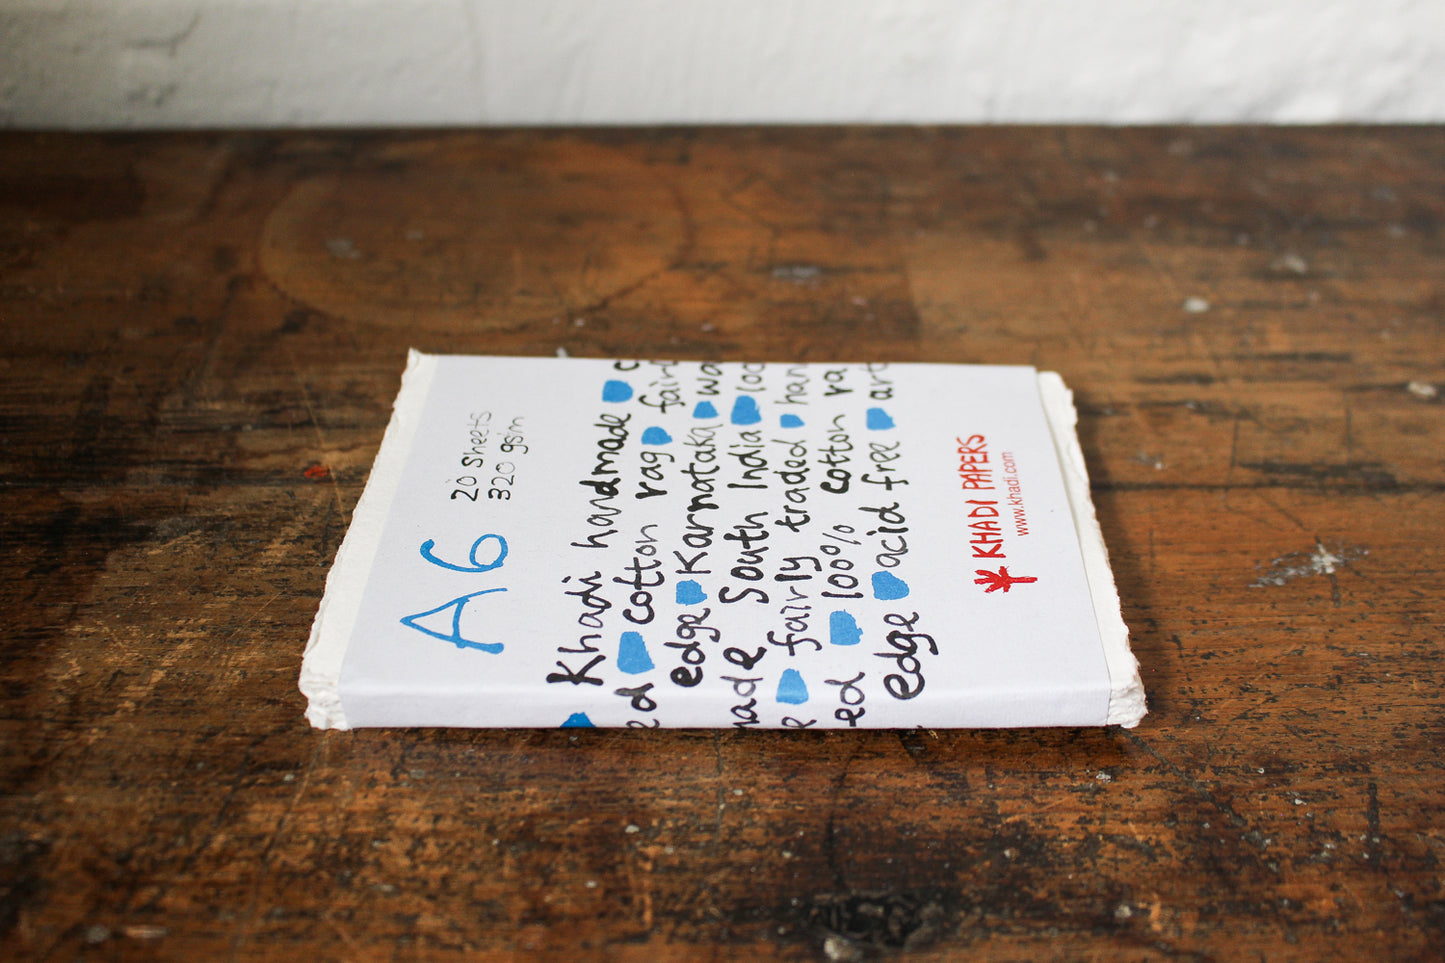 A6
20 sheets
320 gsm
Khadi handmade
cotton rag
edge Karnataka
South India
fairly traded
100% cotton
edge acid free
KHADI PAPERS
www.khadi.com